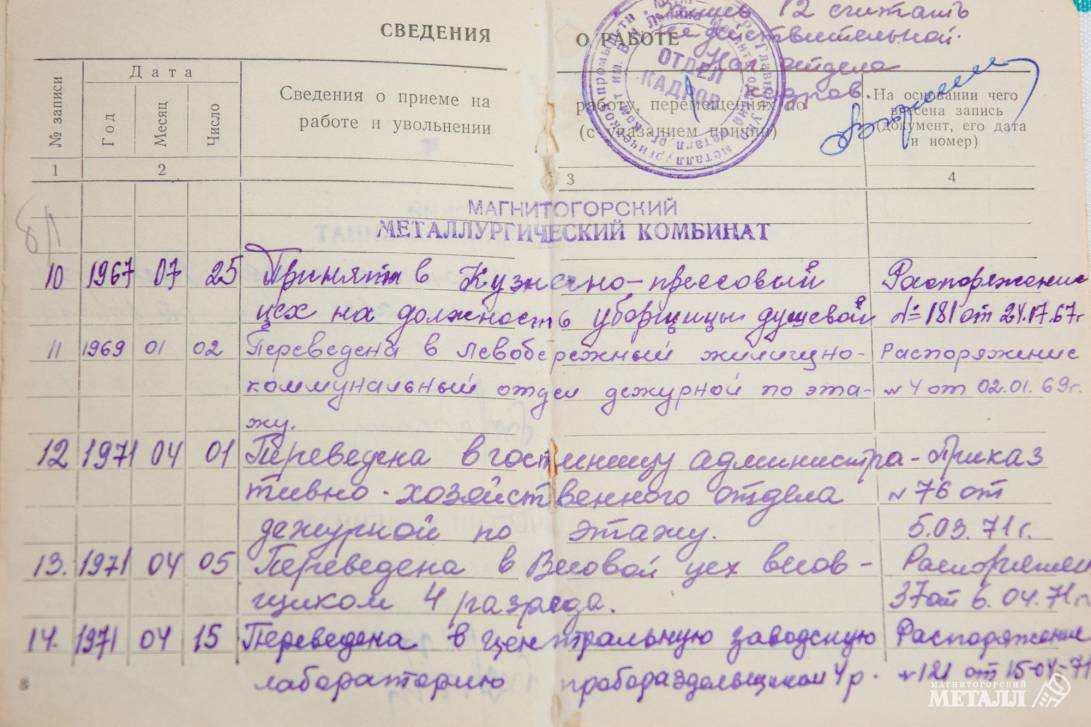 СВЕДЕНИЯ О РАБОТЕ
12 считать
недействительной.
Нач. отдела
кадров.
ОТДЕЛ
КАДРОВ
№ записи
Дата
Год
Месяц
Число
Сведения о приеме на работу, перемещениях по
работе и увольнении (с указанием причин)
На основании чего
внесена запись
(документ, его дата
и номер)
1 2 3 4
МАГНИТОГОРСКИЙ
МЕТАЛЛУРГИЧЕСКИЙ КОМБИНАТ
10 1967 07 25 Принята в Кузнечно-прессовый Распоряжение
цех на должность уборщицы душевой №181 от 24.07.67г
11 1969 01 02 Переведена в Левобережный жилищно- Распоряжение
коммунальный отдел дежурной по эта- №4 от 02.01.69г.
жу.
12 1971 04 01 Переведена в гостиницу администра- Приказ
тивно-хозяйственного отдела №76 от
дежурной по этажу. 5.03.71г.
13. 1971 04 05 Переведена в Весовой цех весов-
щиком 4 разряда. 37 от 6.04.71г
14. 1971 04 15 Переведена в центральную заводскую Распоряжение
лабораторию пробораздельщиком 4 р. №121 от 15-04-71
8
МАГНИТОГОРСКИЙ
МЕТАЛЛ